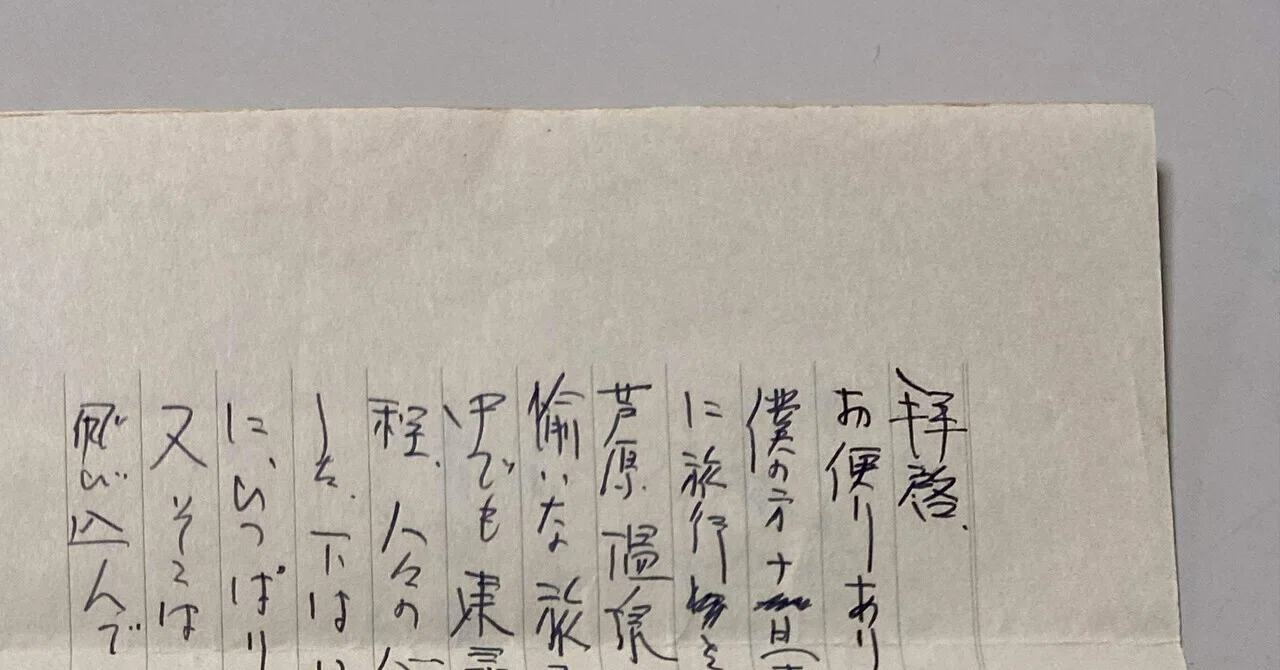 拝啓.
お便りあり
僕の方十日
に旅行
芦原温泉
愉いな旅
中でも東尋
程、人々の
した、下は
に、いっぱり
又そこは
込んで